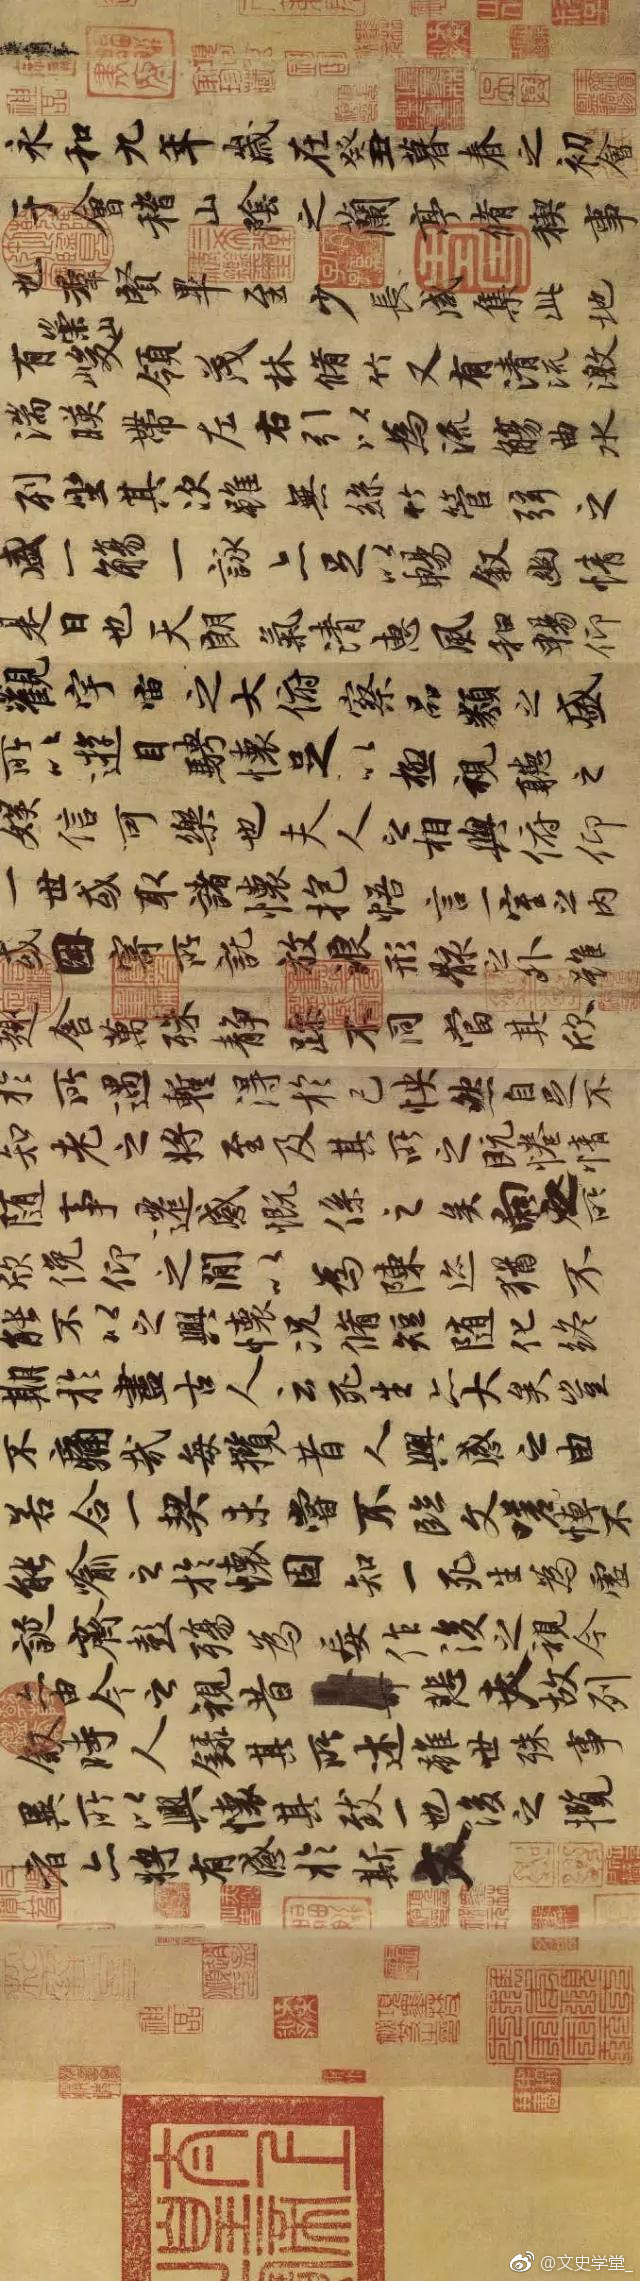 永和九年歲在癸丑暮春之初會
于會稽山陰之蘭亭脩稧事
也羣賢畢至少長咸集此地
有崇山峻領茂林脩竹又有清流激
湍暎帶左右引以為流觴曲水
列坐其次雖無絲竹管弦之
盛一觴一詠亦足以暢敘幽情
是日也天朗氣清惠風和暢仰
觀宇宙之大俯察品類之盛
所以遊目騁懷足以極視聽之
娛信可樂也夫人之相與俯仰
一世或取諸懷抱悟言一室之內
或因寄所託放浪形骸之外雖
趣舍萬殊靜躁不同當其欣
於所遇暫得於己怏然自足不
知老之將至及其所之既惓情
隨事遷感慨係之矣向之所
欣俛仰之閒以為陳迹猶不
能不以之興懷況脩短隨化終
期於盡古人云死生亦大矣豈
不痛哉每攬昔人興感之由
若合一契未嘗不臨文嗟悼不
能喻之於懷固知一死生為虛
誕齊彭殤為妄作後之視今
亦由今之視昔悲夫故列
敘時人錄其所述雖世殊事
異所以興懷其致一也後之攬
者亦將有感於斯文
@文史学堂_